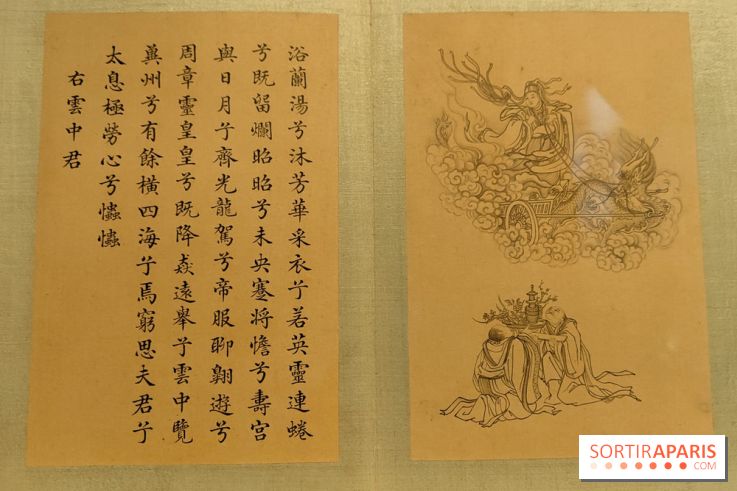 浴蘭湯兮沐芳華采衣兮若英靈連蜷
兮既留爛昭昭兮未央蹇將憺兮壽宮
與日月兮齊光龍駕兮帝服聊翺遊兮
周章靈皇皇兮既降猋遠舉兮雲中覽
冀州兮有餘橫四海兮焉窮思夫君兮
太息極勞心兮𢥞𢥞
右雲中君
SORTIRAPARIS
.COM